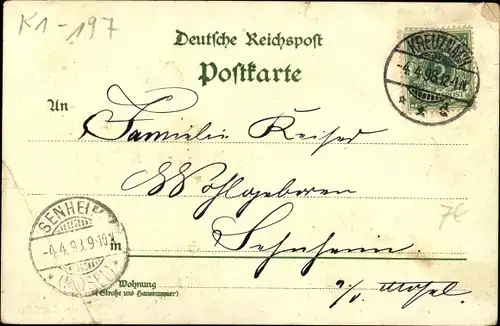 K1-197
Deutsche Reichspost
Postkarte
KREUZNACH
-4.4.98.
An
Familie Keiser
Wohlgeboren
Senheim
SENHEIM
-4.4.98.9-10N
(MOSEL)
in
a/d Mosel.
Wohnung
(Straße und Hausnummer)
7€